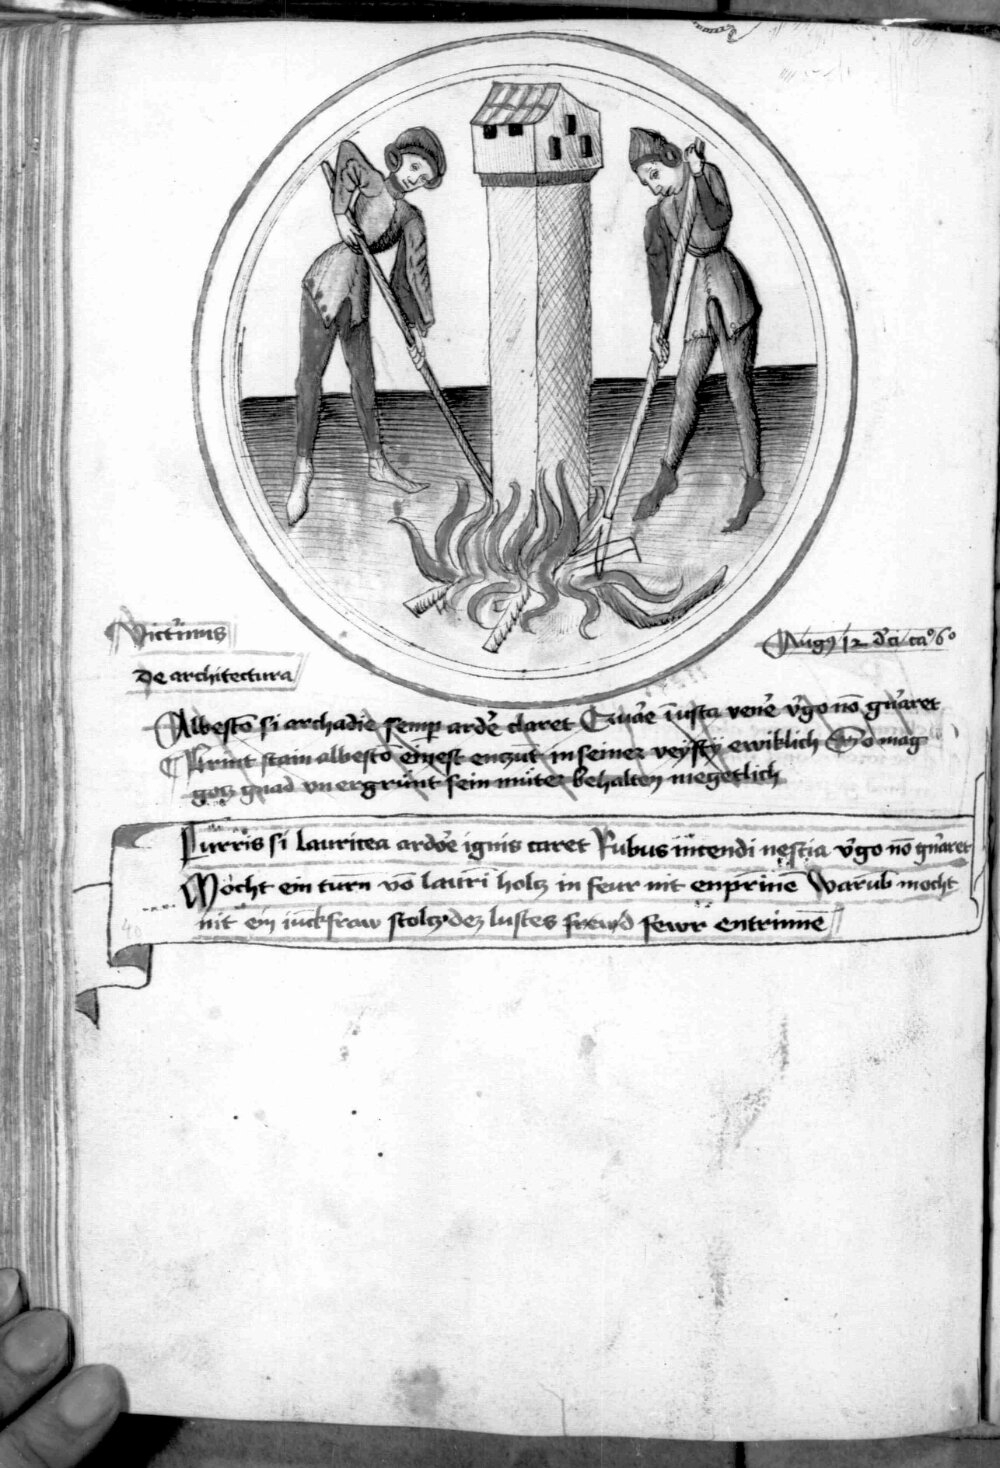 Victruuis
De architectura
Aug9 12 d'ci ca° 6°
Albestō si archadie semp ardēr claret Cur āe īusta vene v'go nō gn'aret
Print stain albestō einest enczut in seiner veysty ewiklich So mag
gotz gnad vnergrūnt sein mūter behalten megetlich
Turris si lauricea ardōe ignis caret Rubus incendi nescia v'go nō gn'aret
Mocht ein turn vō lauri holtz in feur nit enprinē Warūb mocht
nit ein iūckfraw stoltz dez lustes frewd fewr entrinnē